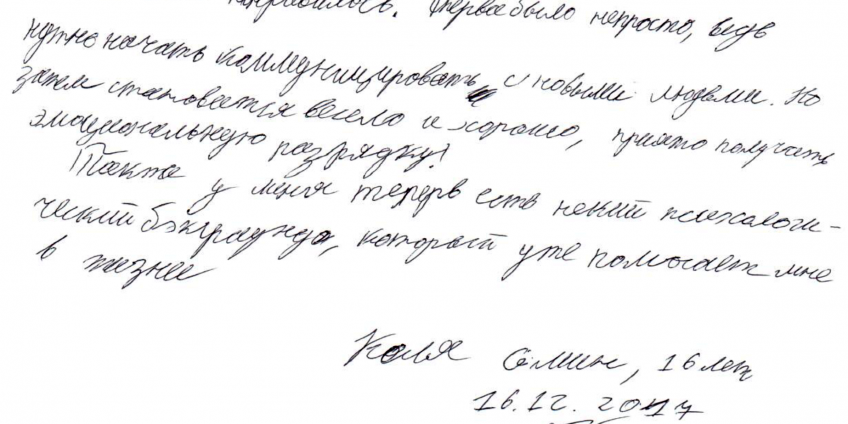 Сперва было непросто, ведь
нужно начать коммуницировать с новыми людьми. Но
затем становется весело и хорошо, приято получать
эмоциональную разрядку!
Также у меня теперь есть некий психологи-
ческий бэкграунд, который уже помогает мне
в жизне
Коля 16 лет
16.12.2017